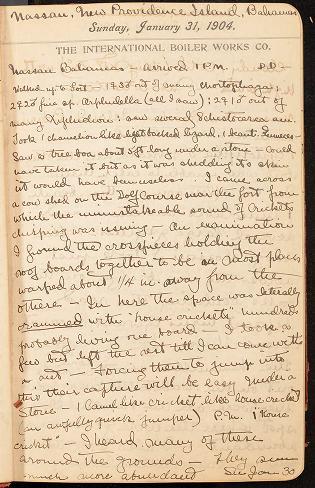 Nassau, New Providence Island, Bahamas
Sunday, January 31, 1904.
THE INTERNATIONAL BOILER WORKS CO.
Nassau Bahamas - arrived 1 P.M.
Walked up to Fort - out of many
fine sp. (all I saw); out of
many saw several
Took 1 chameleon like backed lizard,
Saw a tree boa about 5ft long under a stone - could
have taken it but as it was shedding its skin
it would have been useless. I came across
a cow shed on the Golf Course near the fort from
which the unmistakeable sound of Crickets
chirping was issuing - On examination
I found the crosspieces holding the
roof boards together to be in most places
warped about 1/4 in. away from the
others - In here the space was literally
crammed with "house crickets" hundreds
probably living one board - I took a
few but left the rest till I can come with
a net - forcing them to jump into
this their capture will be easy. Under a
stone - 1 Camel like cricket like house cricket
(an awfully quick jumper) P.M. 1 "House
cricket" - I heard many of these
around the grounds - They seem
much more abundant See Jan 30